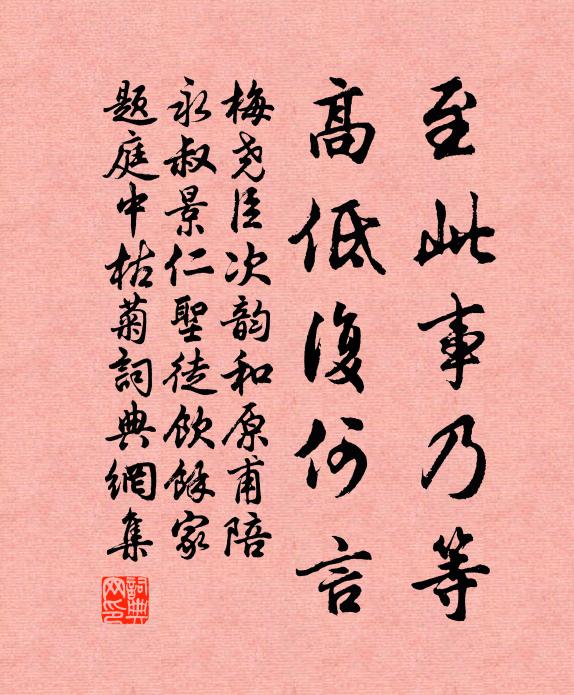 至此事乃等
高低復何言
梅尧臣次韵和原甫陪
永叔景仁聖徒饮餘家
题庭中枯菊詞典網集
詞典網印